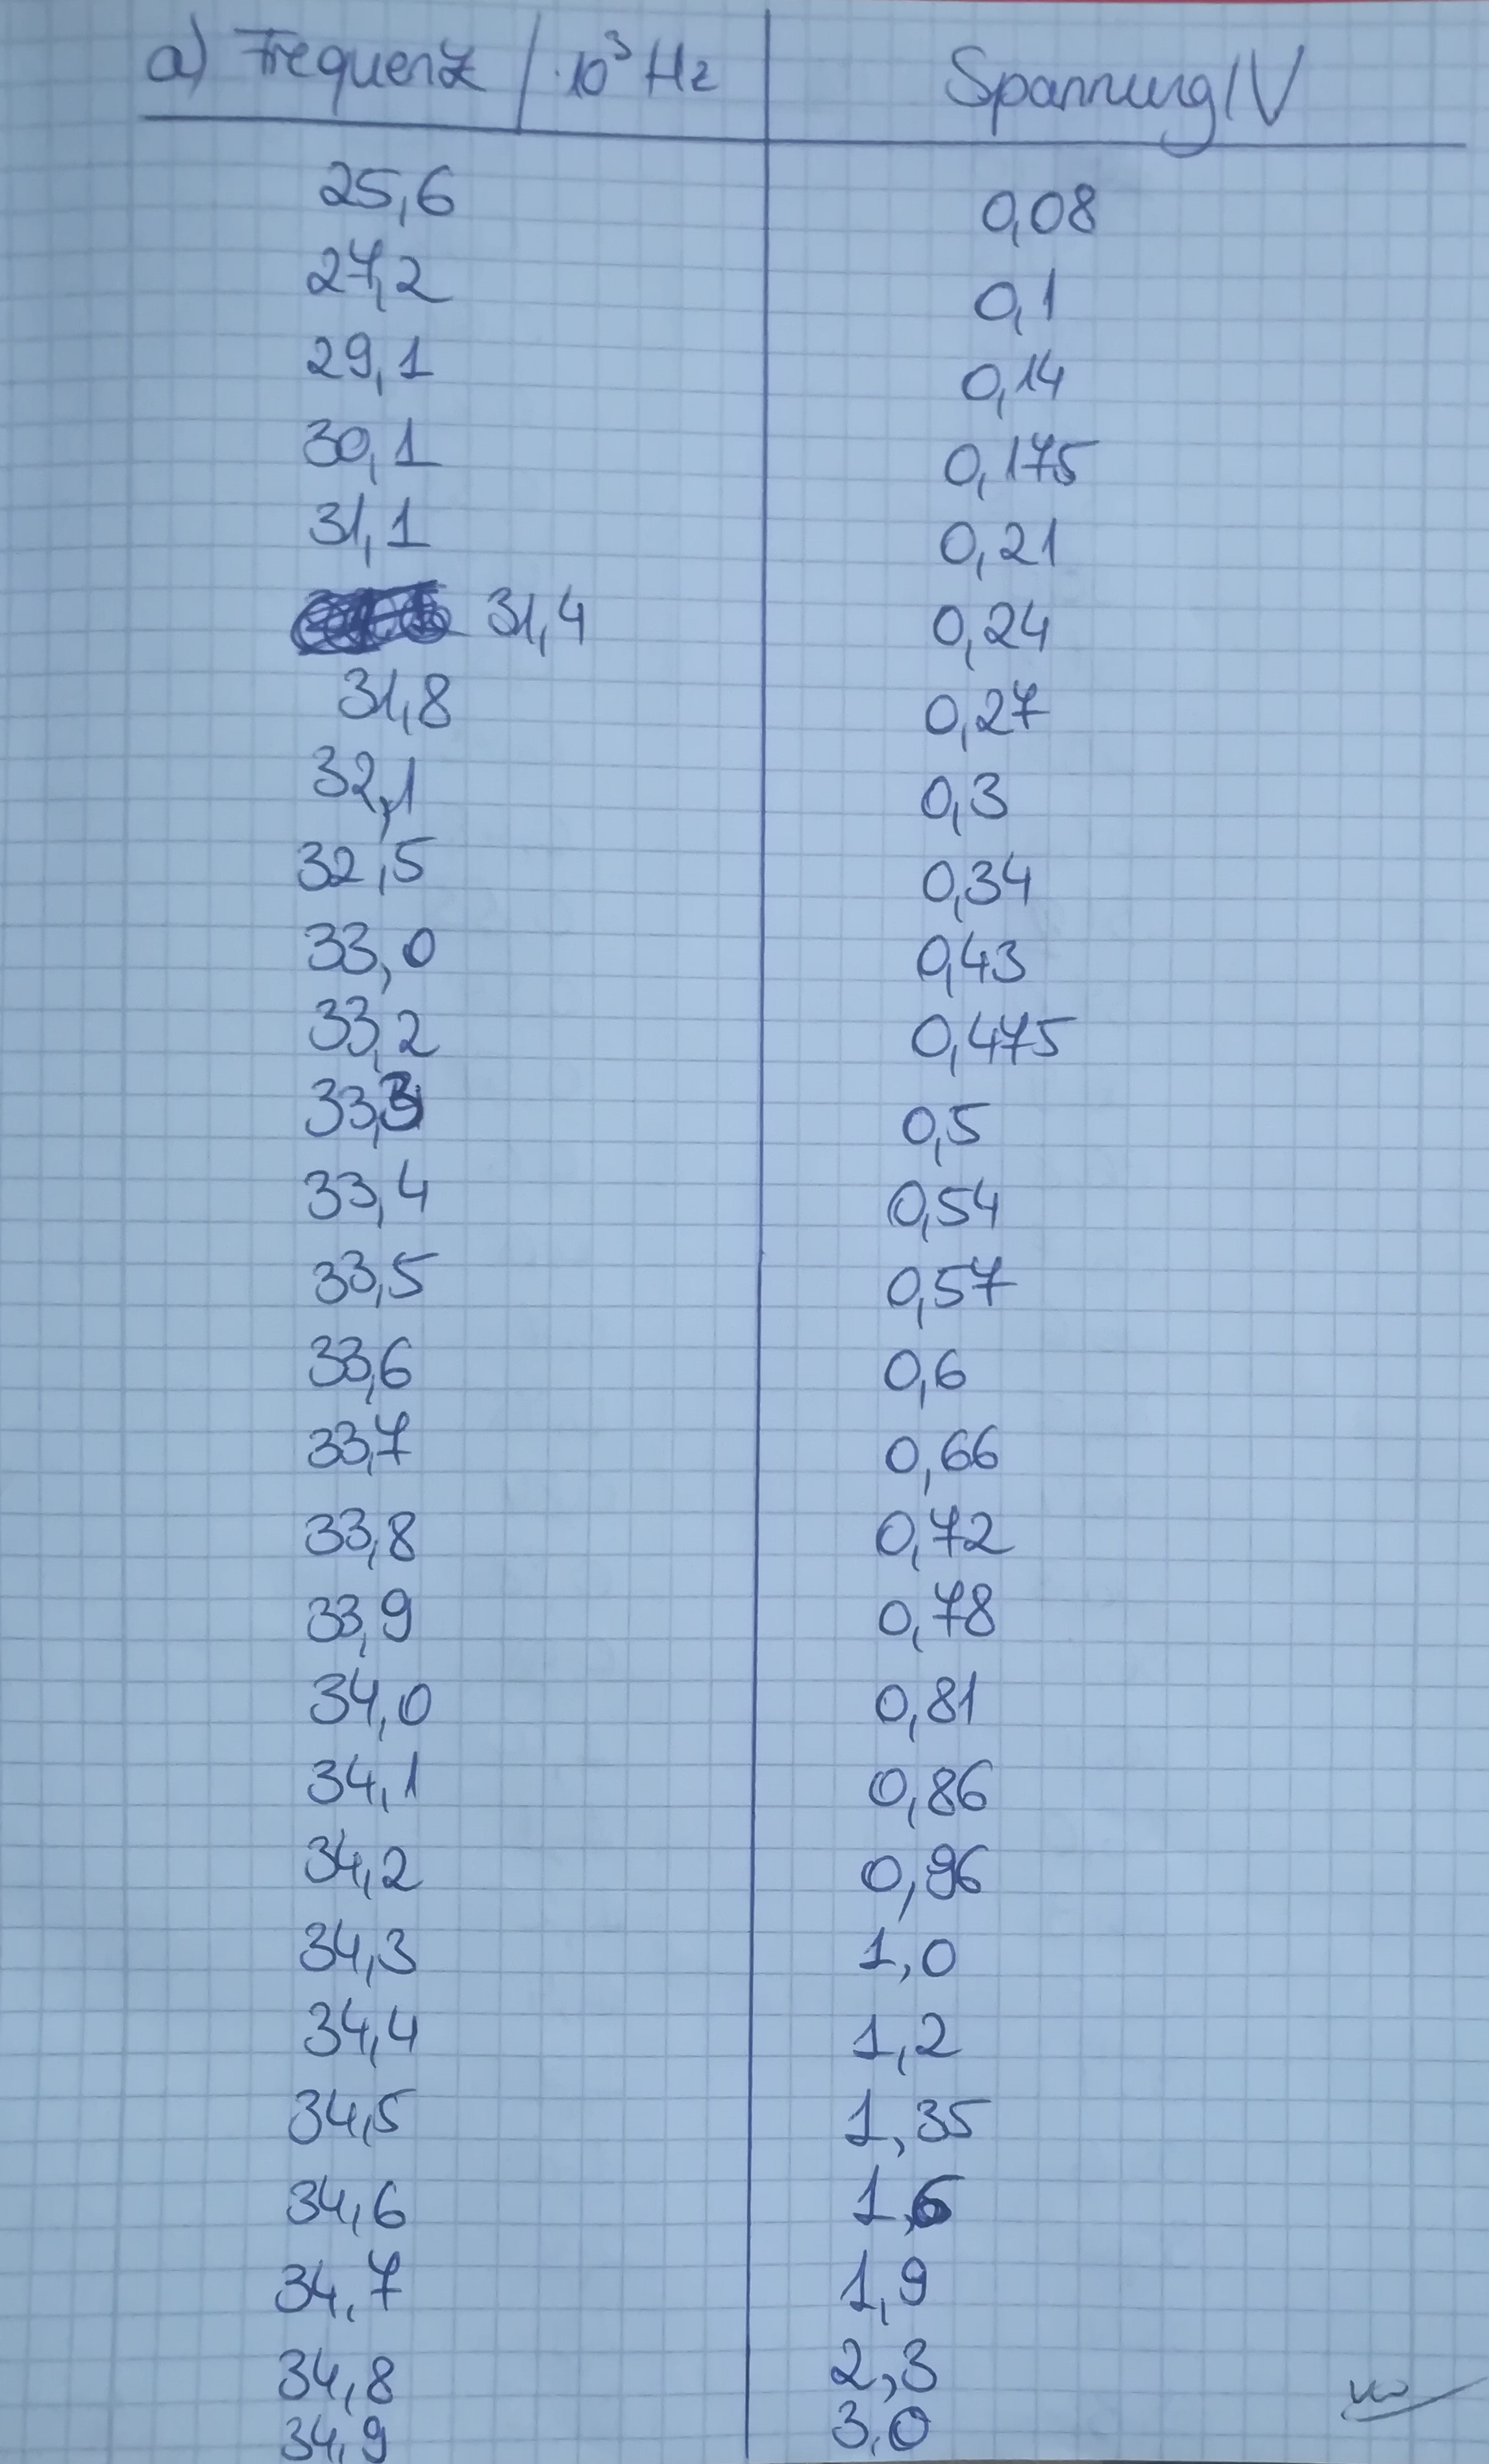 a) Frequenz / ·10³ Hz Spannung/V
25,6 0,08
27,2 0,1
29,1 0,14
30,1 0,175
31,1 0,21
31,4 0,24
31,8 0,27
32,1 0,3
32,5 0,34
33,0 0,43
33,2 0,475
33,3 0,5
33,4 0,54
33,5 0,57
33,6 0,6
33,7 0,66
33,8 0,72
33,9 0,78
34,0 0,81
34,1 0,86
34,2 0,96
34,3 1,0
34,4 1,2
34,5 1,35
34,6 1,6
34,7 1,9
34,8 2,3
34,9 3,0